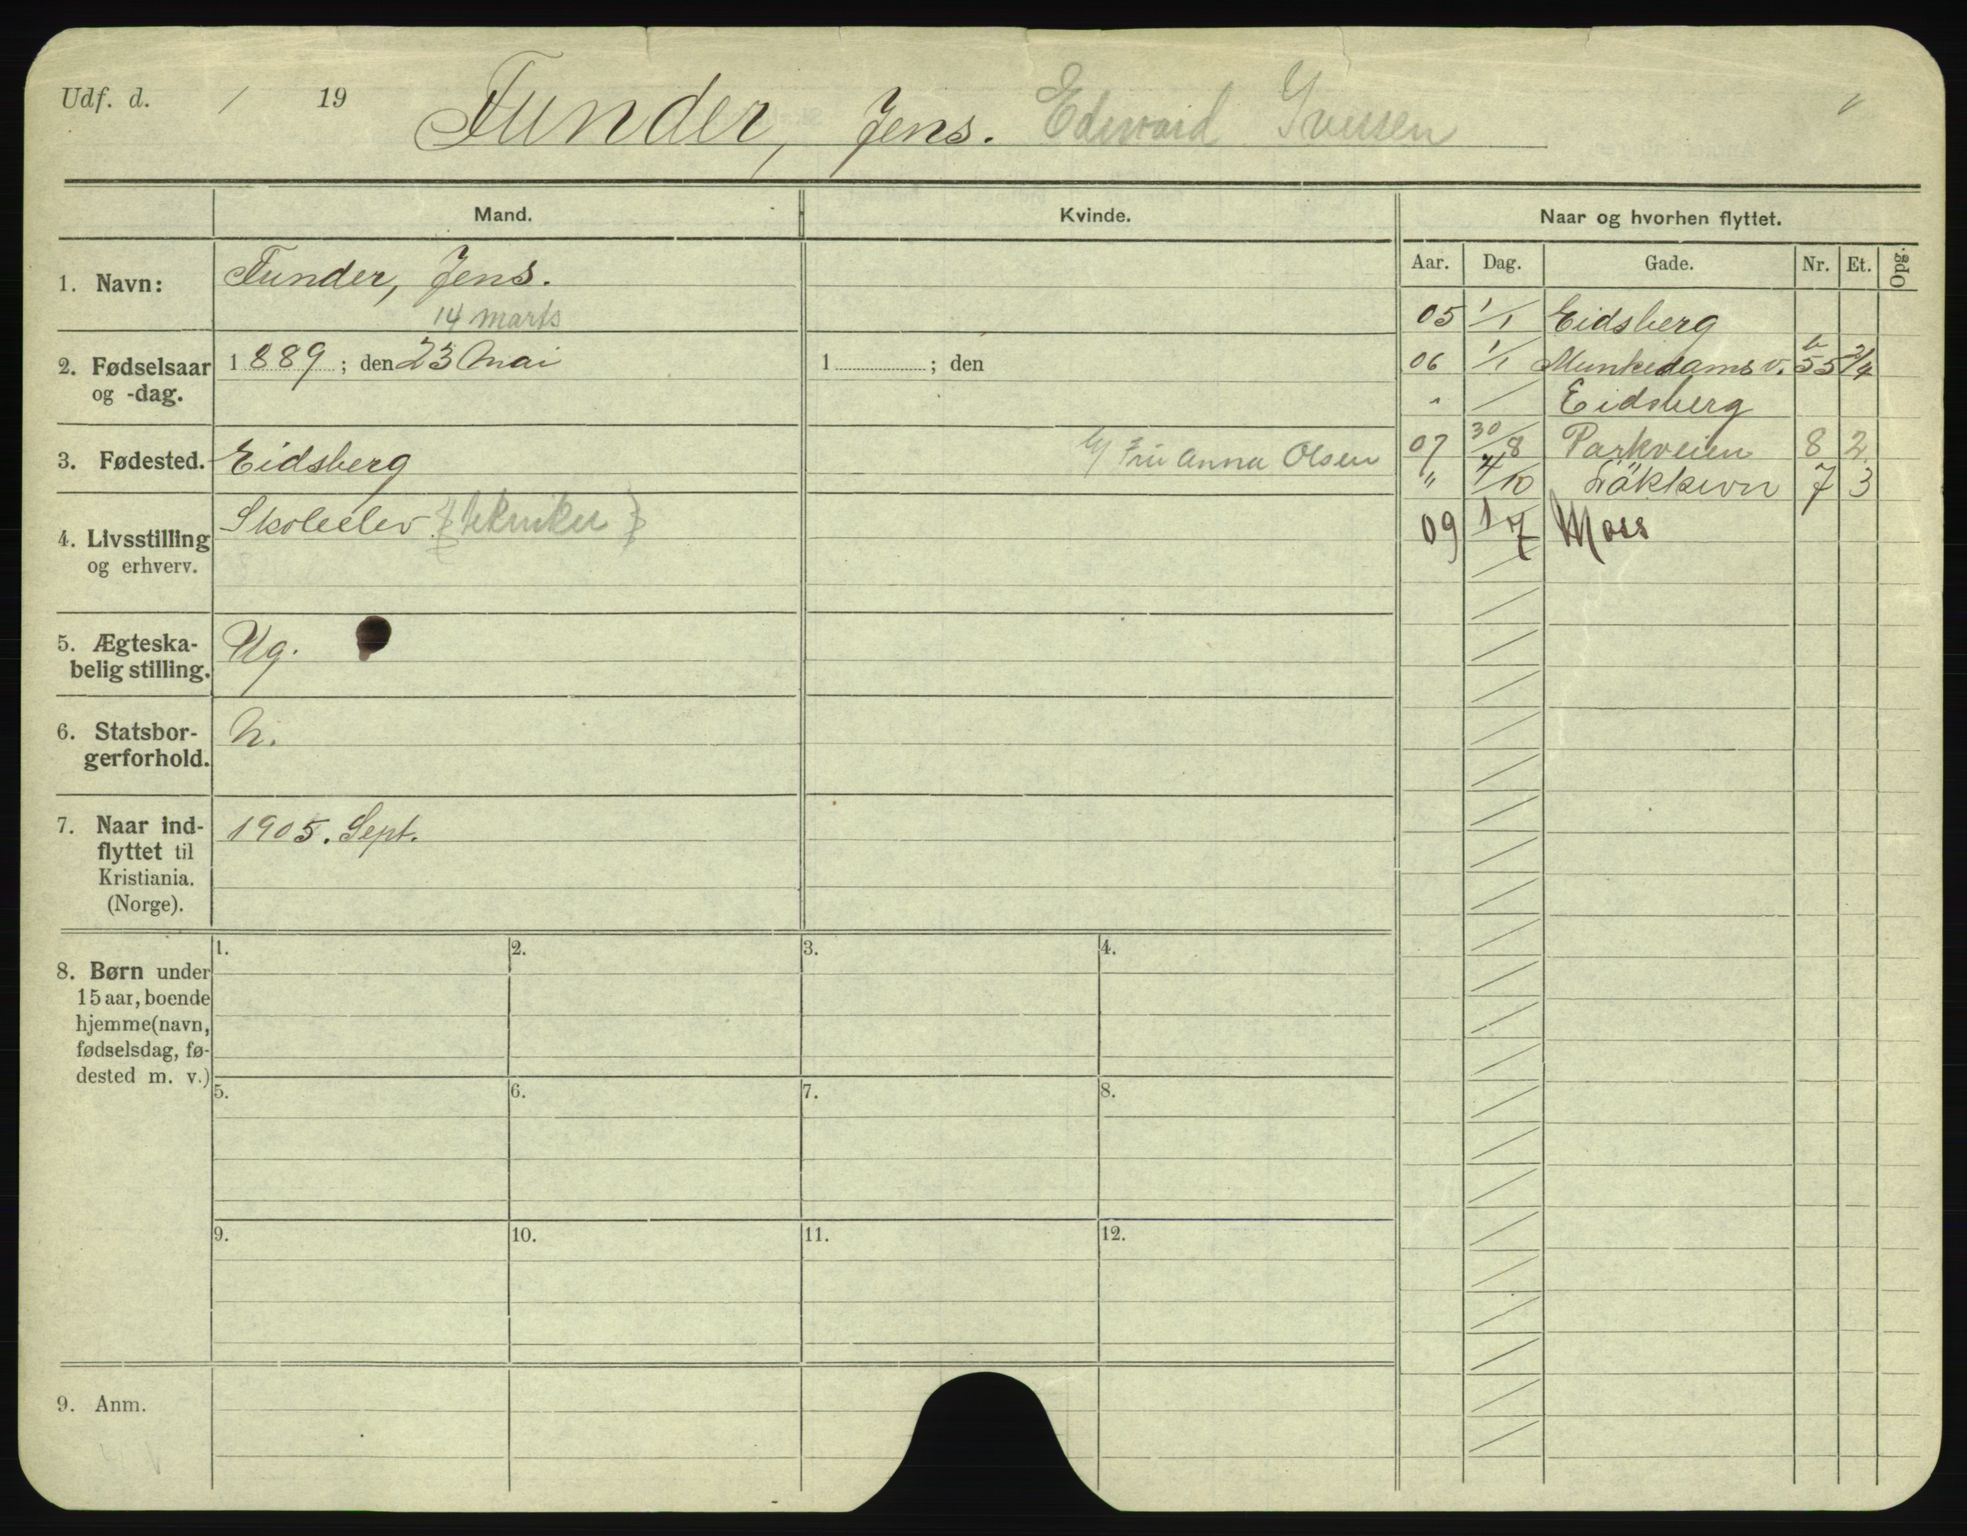 Udf. d. / 19
Funder, Jens. Edward Iversen
Mand.
Kvinde.
Naar og hvorhen flyttet.
Aar. Dag. Gade. Nr. Et. Opg.
1. Navn: Funder, Jens.
14 marts
2. Fødselsaar og -dag. 1889; den 23 Mai
1 ; den
3. Fødested. Eidsberg
Fru Anna Olsen
4. Livsstilling og erhverv. Skoleelev (tekniker)
5. Ægteska-
belig stilling. Ug.
6. Statsbor-
gerforhold. N.
7. Naar ind-
flyttet til
Kristiania.
(Norge). 1905. Sept.
8. Børn under
15 aar, boende
hjemme (navn,
fødselsdag, fø-
dested m. v.)
1. 2. 3. 4.
5. 6. 7. 8.
9. 10. 11. 12.
9. Anm.
05 1/1 Eidsberg
06 1/1 Munkedamsv. 55 b 2/4
" / Eidsberg
07 30/8 Parkveien 8 2
" 4/10 Løkkevn 7 3
09 1/7 Moss